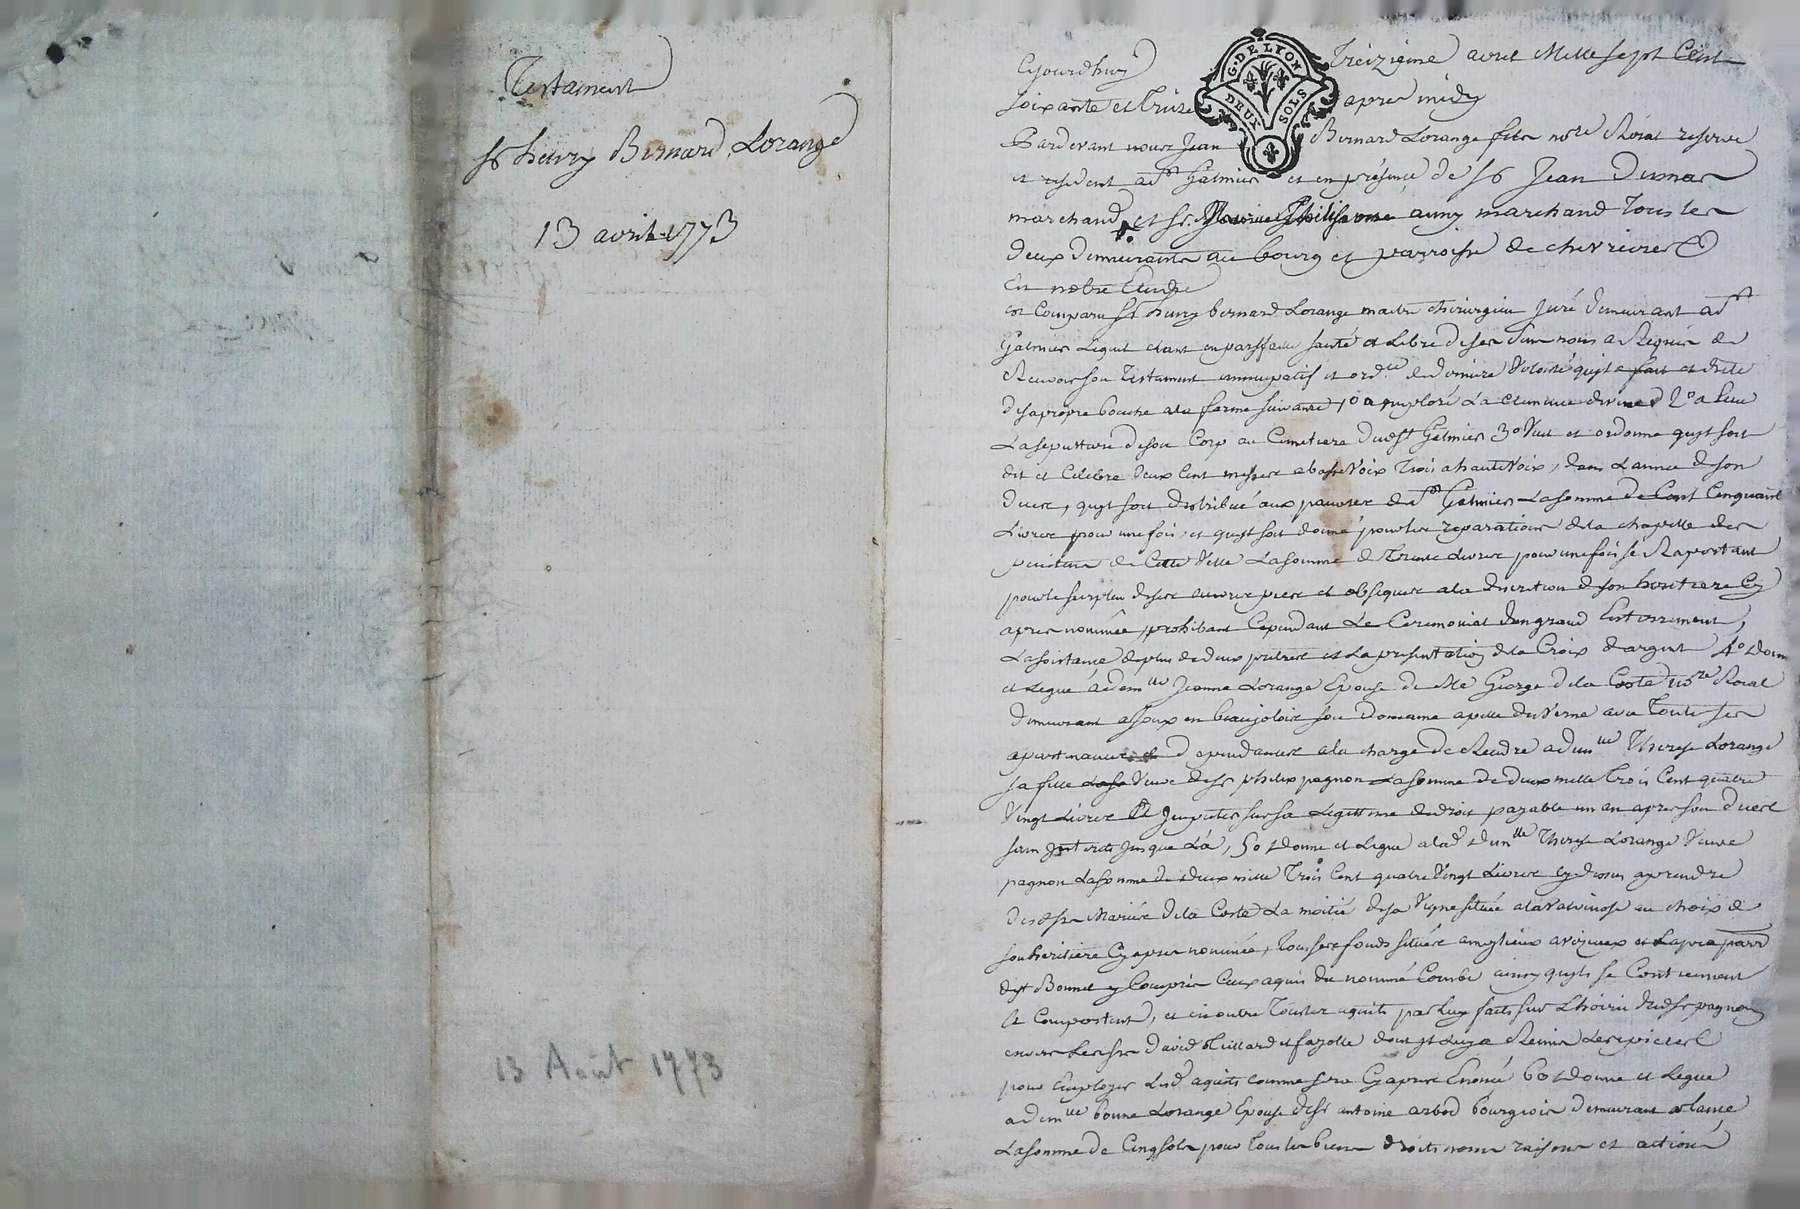 Testament
sr henry Bernard Lorange
13 avril 1773
13 Août 1773
G. DE LYON
DEUX SOLS
Cejourdhuy Treizieme avril Mille sept Cent
soixante et Treize apres midy
Pardevant nous Jean Bernard Lorange fils nore Roial reservé
et resident a st Galmier et en présence de sr Jean Dumas
marchand et sr. aussy marchand Tous les
deux demeurants au bourg et parroisse de chevrieres
En notre Etude
est Comparu sr henry bernard Lorange maitre chirurgien Juré demeurant a st
Galmier Lequel etant en parffaite santé et Libre de ses sens nous a Requis de
Recevoir son Testament nuncupatif et ordce de derniere Volonté quyl a fait et dicté
de sa propre bouche a la forme suivante 1o a imploré La clemence divine 2o a Eleu
La sepulture de son Corp au Cimetiere dud st Galmier 3o Veut et ordonne quyl soit
dit et Celebré deux Cent messes a basse Voix Trois a haute Voix, dans L'année de son
deces, quyl soit distribué aux pauvres de st Galmier La somme de Cent Cinquante
Livres pour une fois, et quyl soit donné pour les reparations de la chapelle des
penitens de Cette Ville La somme de Trente Livres pour une fois se Raportant
pour le surplus de ses œuvres pies et obseques a la discretion de son heritiere Cy
apres nommée, prohibant Cependant Le Ceremonial d'un grand Enterrement,
L'assistance de plus de deux prêtres et La presentation de la Croix d'argent 4o donne
et Legue a dem lle Jeanne Lorange Epouse de Me George de la Coste nore Roial
demeurant a en beaujolois son Domaine apellé du Verne avec Toutes ses
apartenances et dependances a la charge de Rendre a dem lle Therese Lorange
sa fille Veuve de sr pagnon La somme de deux mille Trois Cent quatre
Vingt Livres Imputer sur sa Legitime de droit payable un an apres son deces
sans Interets Jusque La, 5o donne et Legue a lad. dem lle Therese Lorange Veuve
pagnon La somme de deux mille Trois Cent quatre Vingt Livres cy dessus a prendre
des de la Coste La moitié de sa Vigne située a au choix de
son heritiere Cy apres nommée, Tous ses fonds situés et
dyt Bonnel y Compris Ceux aquis du nommé Combe ainsy quyls se Contiennent
et Comportent, et en outre Tous les aquits par Luy faits sur L'hoirie dud sr pagnon
envers Les srs David et fayolle dont yl Luy a Remis Les pieces
pour Employer Lesd aquits comme sera Cy apres Enoncé 6o donne et Legue
a dem lle bonne Lorange Epouse de sr antoine arbod bourgeois demeurant
La somme de Cinq sols pour Tous les biens droits noms raisons et actions